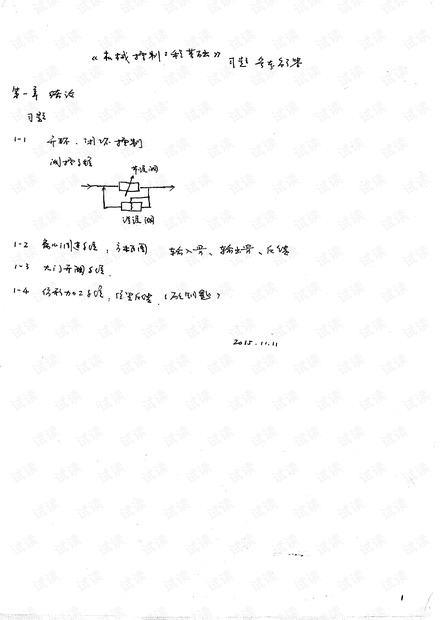 《机械控制工程基础》 习题参考答案
第一章 绪论
习题
1-1 开环、闭环控制
调控系统
节流阀
溢流阀
1-2 离心调速系统，方框图 输入量、输出量、反馈
1-3 大门开闭系统
1-4 仿形加工系统，位置反馈
2015.11.11
1